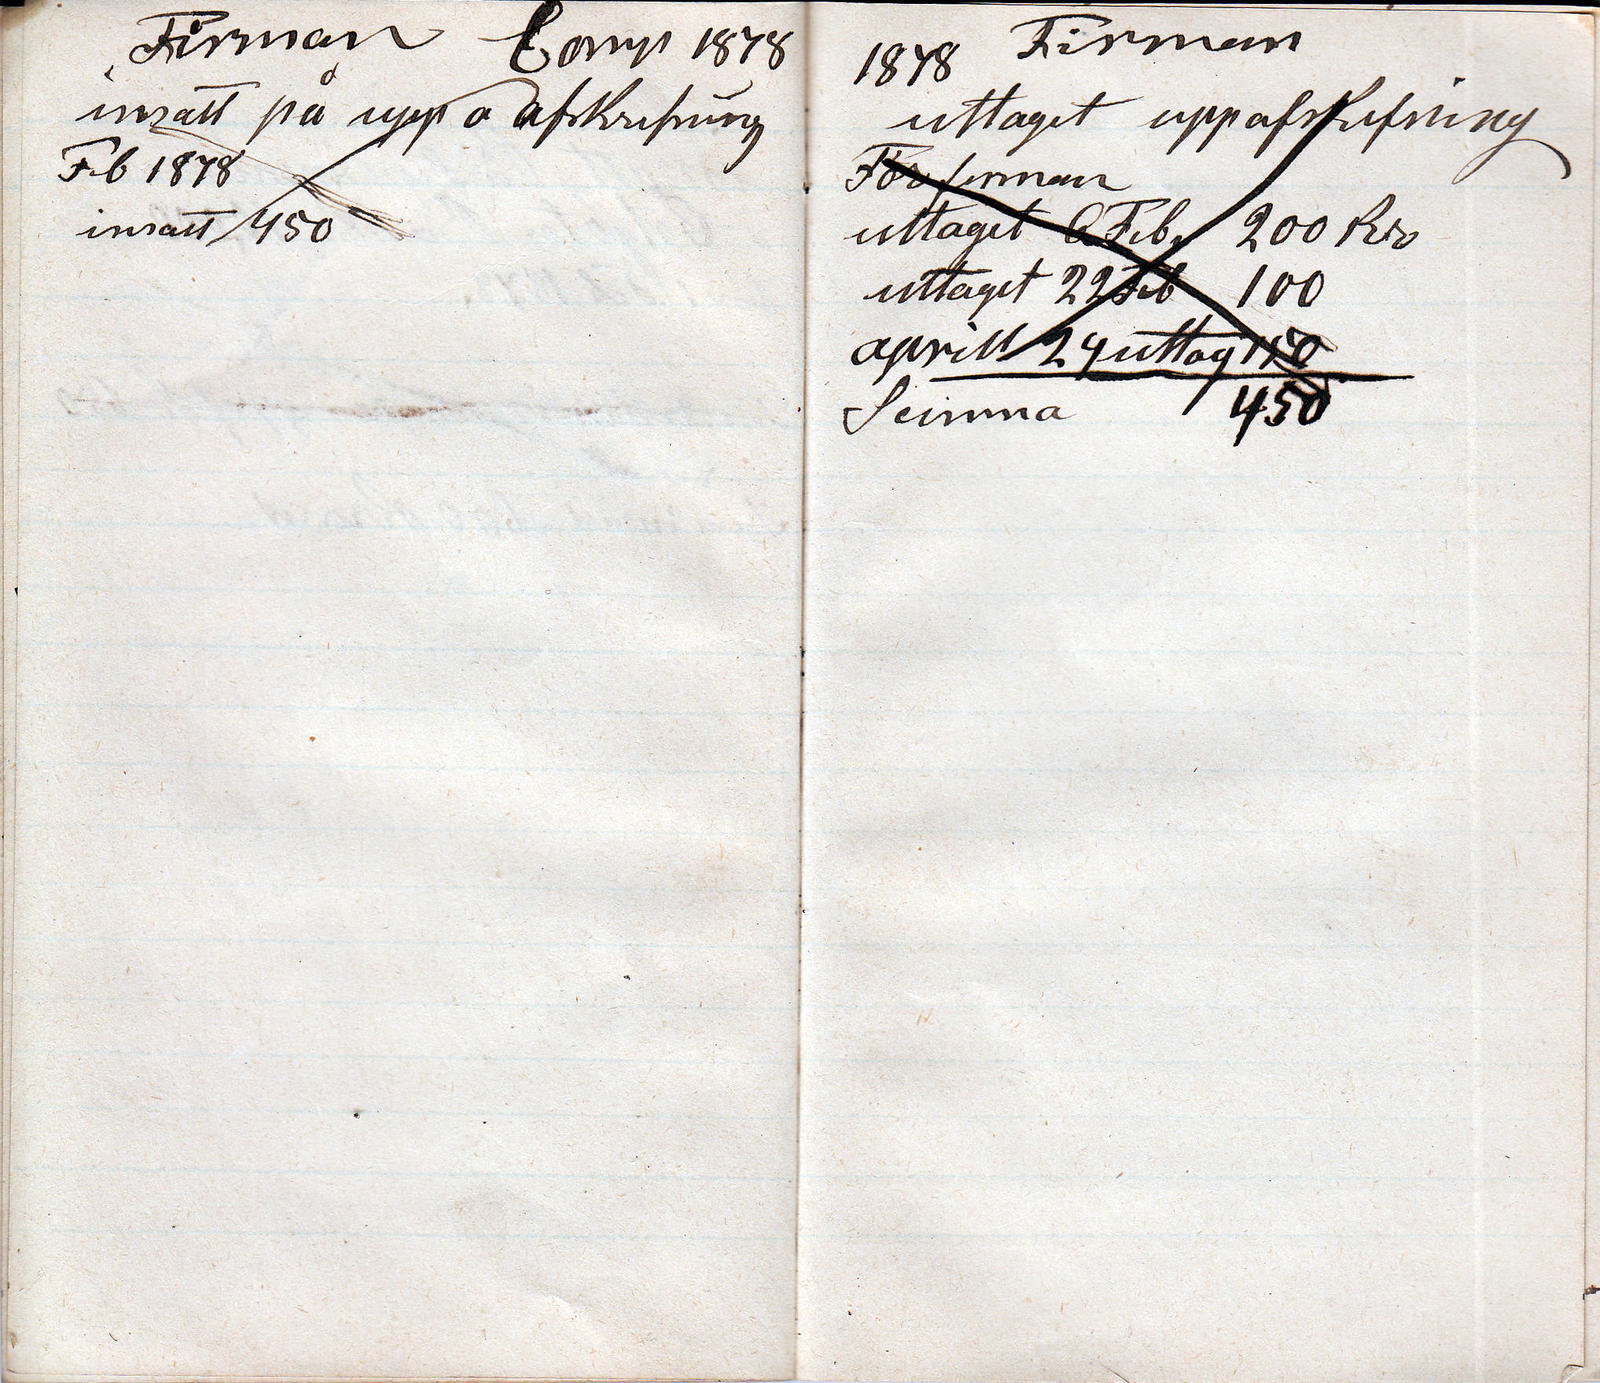 Firman Comp 1878
insatt på upp o afskrifning
Feb 1878
insatt 450
1878 Firman
uttaget uppafskrifning
För firman
uttaget 6 Feb. 200 Kr
uttaget 22 Feb 100
aprill 29 uttag 150
Summa 450